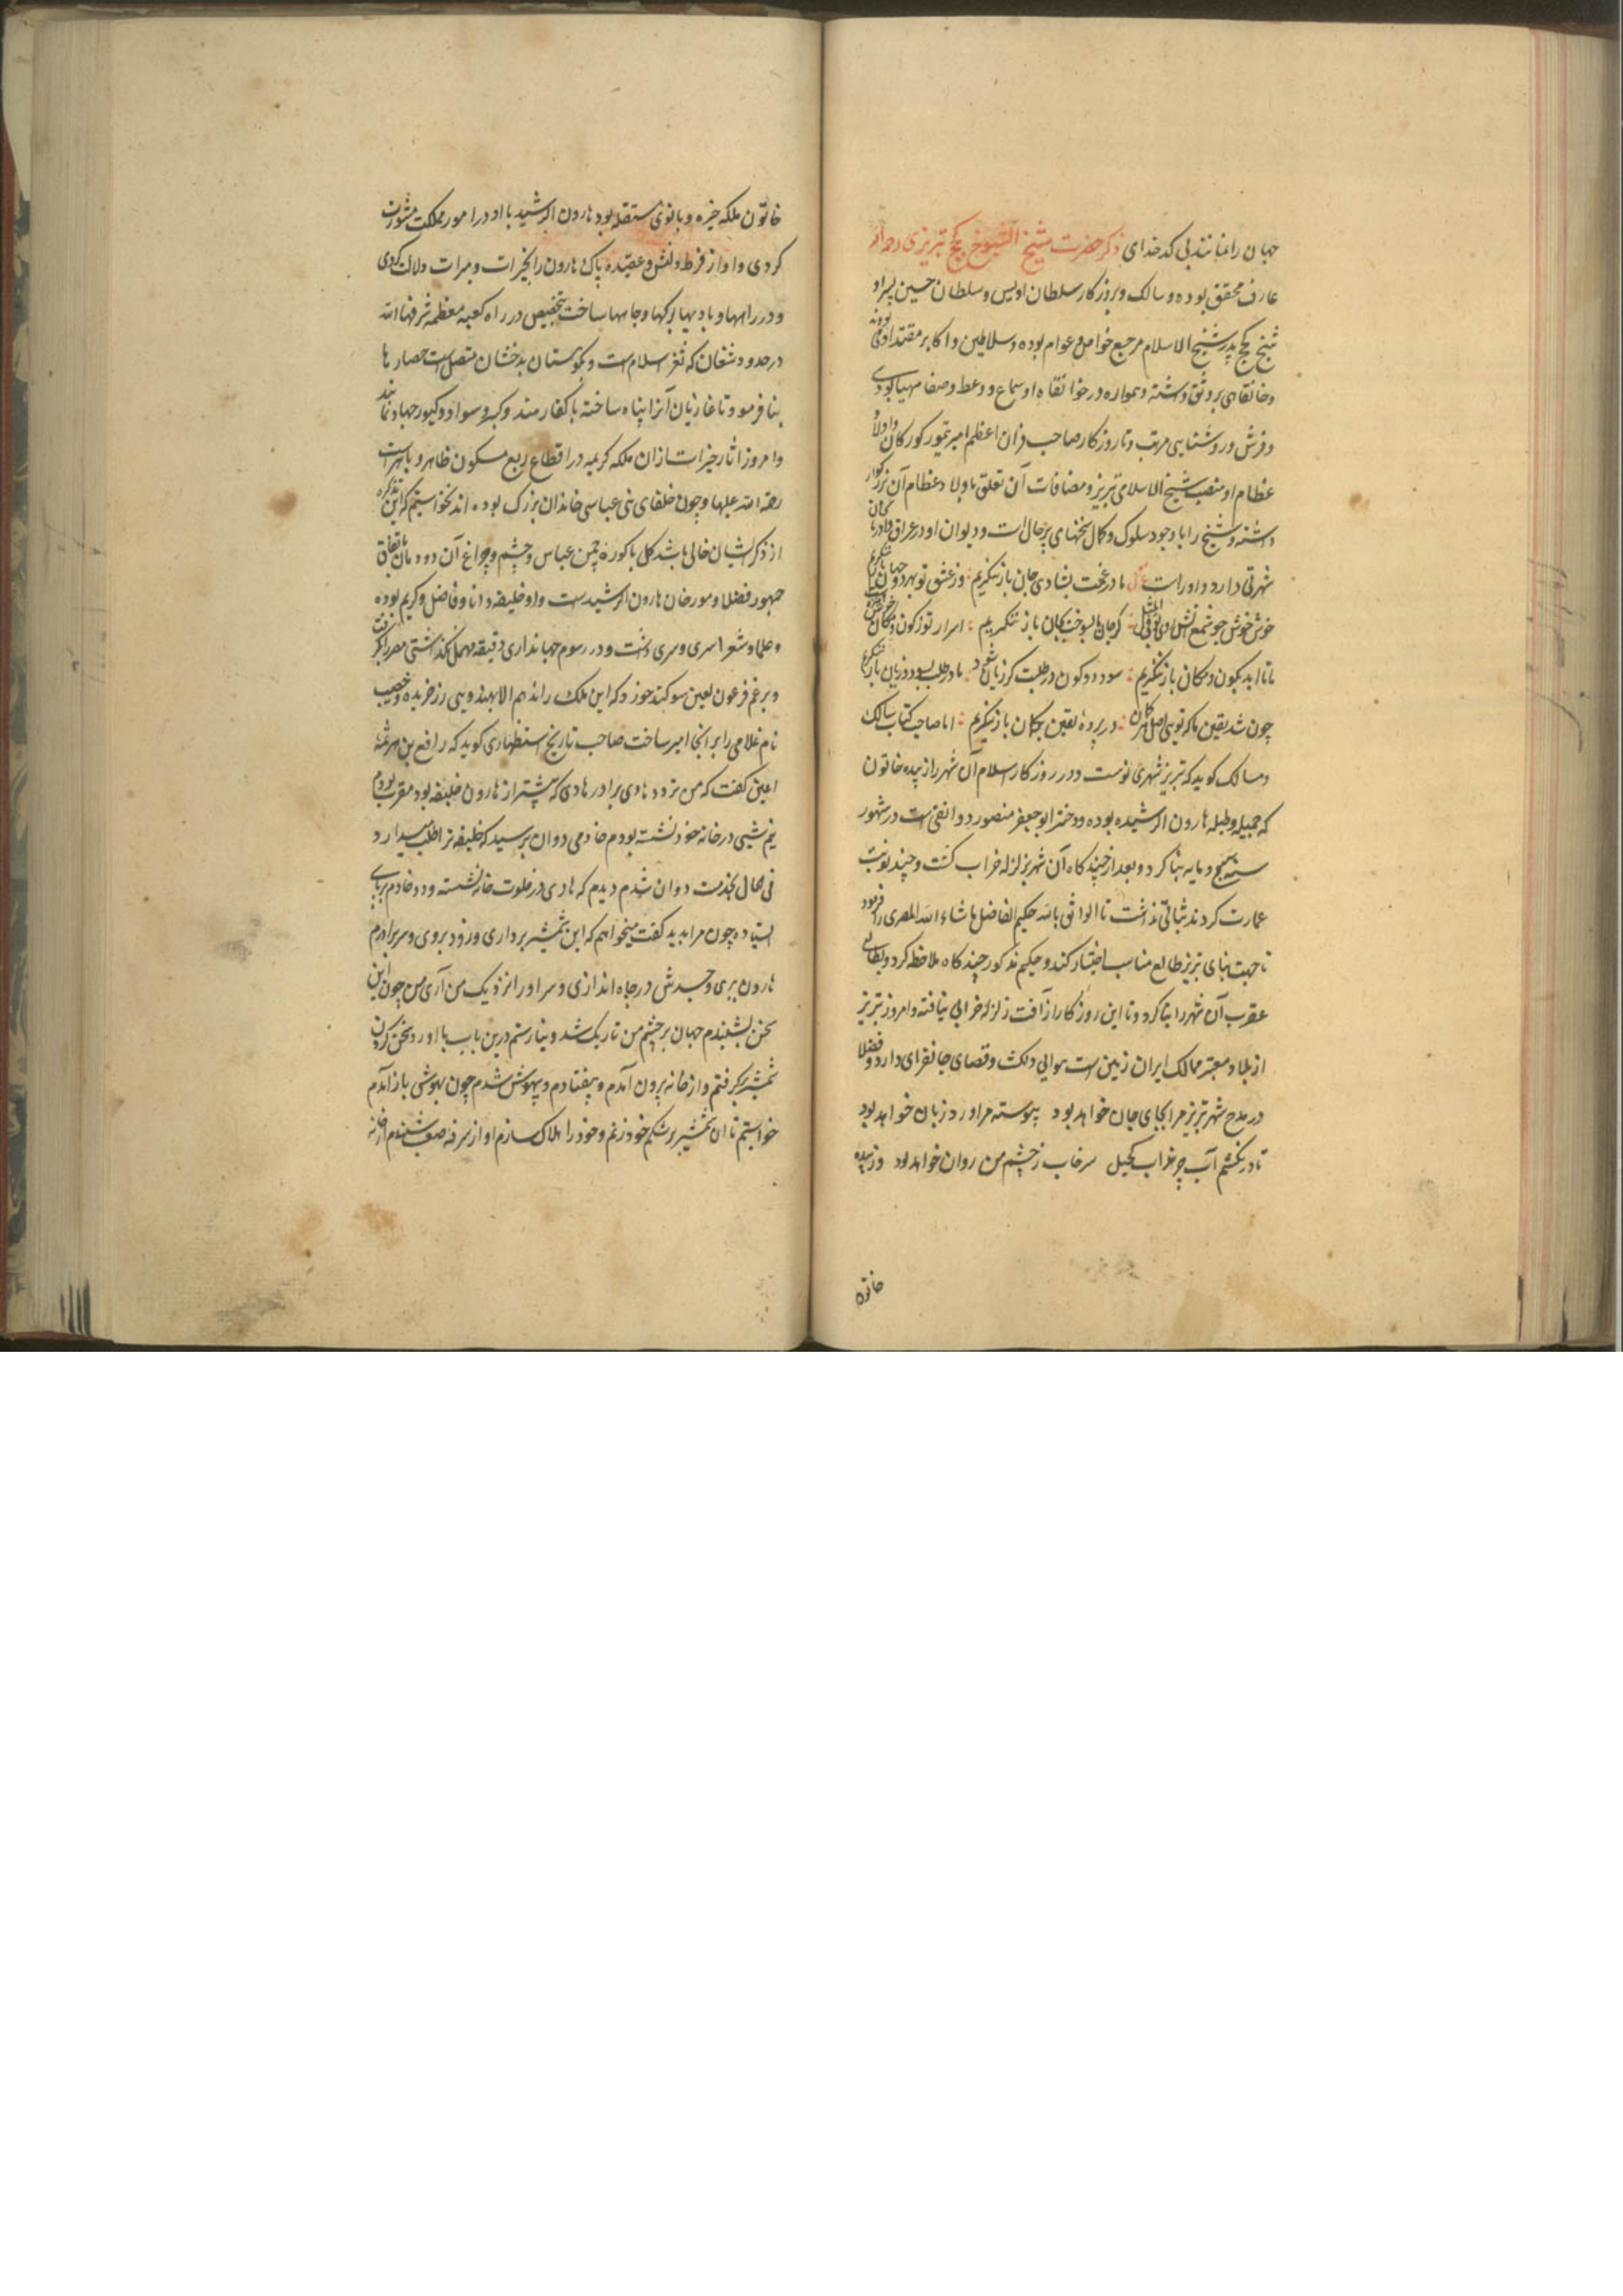 جهان را نمانند بی کدخدای ذکر حضرت شیخ الشیوخ کجج تبریزی رحمه الله
عارف محقق بوده و سالک و بروزکار سلطان اویس و سلطان حسین پسر او
شیخ کجج پدر شیخ الاسلام مرجع خواص و عوام بوده و سلاطین و اکابر معتقد او می بودند
و خانقاهی بر رونق داشته و همواره در خوانقاه او سماع و وعظ و صفا مهیا بودی
و فرش و روشنایی مرتب و تا روزکار صاحب قران اعظم امیر تیمور کورکان و اولاد
عظام او منصب شیخ الاسلامی تبریز و مضافات آن تعلق باولاد عظام آن بزرکوار
داشته و شیخ را با وجود سلوک و کمال سخنهای پر حال است و دیوان او در عراق و آذربایجان
شهرتی دارد و او راست غزل ما در غمت بشادی جان باز ننکریم وز عشق تو بهر دو جهان باز ننکریم
خوش خوش چو شمع ز آتش عشق تو فی المثل کر جان ما بسوخت بجان باز ننکریم اسرار تو ز کون و مکان چون
ما تا ابد بکون و مکان باز ننکریم سود دو کون در طلبت کر زیان شود ما در طلب بسود و زیان باز ننکریم
چون شد یقین ما که تویی اصل هر کمان در پرده یقین بکمان باز ننکریم اما صاحب کتاب مسالک
و ممالک کوید که تبریز شهری نوست و در روزکار اسلام آن شهر را زبیده خاتون
که جمیله و حلیله هارون الرشید بوده و دختر ابو جعفر منصور دوانقی است در شهور
سنه و مایه بنا کرد و بعد از چند کاه آن شهر بزلزله خراب کشت و چند نوبت
عمارت کردند ثباتی نداشت تا الواثق بالله حکیم الفاضل ما شاء الله المصری را فرمود
تا جهت بنای تبریز طالع مناسب اختیار کند و حکیم مذکور چند کاه ملاحظه کرد و بطالع
عقرب آن شهر را بنا کرد و تا این روزکار از آفت زلزله خرابی نیافته و امروز تبریز
از بلاد معتبر ممالک ایران زمین است هوایی دلکش و فضای جانفزای دارد و فضلا
در مدح شهر تبریز مرا بجای جان خواهد بود پیوسته مرا ورد زبان خواهد بود
تا در نکشم آب چرنداب کجیل سرخاب ز چشم من روان خواهد بود و زبیده
خاتون
خاتون ملکه خیره و بانوی مستقله بود هارون الرشید با او در امور مملکت مشورت
کردی و او از فرط دانش و عقیده پاک هارون را بخیرات و مبرات دلالت کردی
و در راهها و بادیها برکها و چاهها ساخت بتخصیص در راه کعبه معظمه شرفها الله
در حدود شغان که ثغر اسلام است و بکوهستان بدخشان متصل است حصارها
بنا فرمود تا غازیان آنرا پناه ساخته با کفار هند و کبر و سواد و کیور جهاد نمایند
و امروز آثار خیرات ازان ملکه کریمه در اقطاع ربع مسکون ظاهر و باهر است
رحمة الله علیها و چون خلفای بنی عباسی خاندان بزرک بوده اند نخواستیم که این تذکره
از ذکر ایشان خالی باشد کل باکوره چمن عباس و چشم و چراغ آن دودمان باتفاق
جمهور فضلا و مورخان هارون الرشیدست و او خلیفه دانا و فاضل و کریم بوده
و علما و شعرا سری و سری داشت و در رسوم جهانداری دقیقه مهمل نکذاشتی مصر را بکرفت
و برغم فرعون لعین سوکند خورد که این ملک را ندهم الا بهندویی زرخریده و خصیب
نام غلامی را بر آنجا امیر ساخت صاحب تاریخ استظهاری کوید که رافع بن هرثمه
اعین کفت که من نزد هادی برادر هادی که پیشتر از هارون خلیفه بود مقرب بودم
نیم شبی در خانه خود نشسته بودم خادمی دوان برسید که خلیفه ترا طلب میدارد
فی الحال بخدمت دوان شدم دیدم که هادی در خلوت خانه نشسته و دو خادم برپای
ایستاده چون مرا بدید کفت میخواهم که این شمشیر برداری و زود بروی و سر برادرم
هارون ببری و جسدش در چاه اندازی و سر او را نزدیک من آری من چون این
سخن بشنیدم جهان بر چشم من تاریک شد و نیارستم درین باب با او رد سخن کردن
شمشیر برکرفتم و از خانه برون آمدم و بیفتادم و بیهوش شدم چون بهوشی باز آمدم
خواستم تا آن شمشیر بر شکم خود زنم و خود را هلاک سازم آواز سرفه صعب شنیدم از خانه